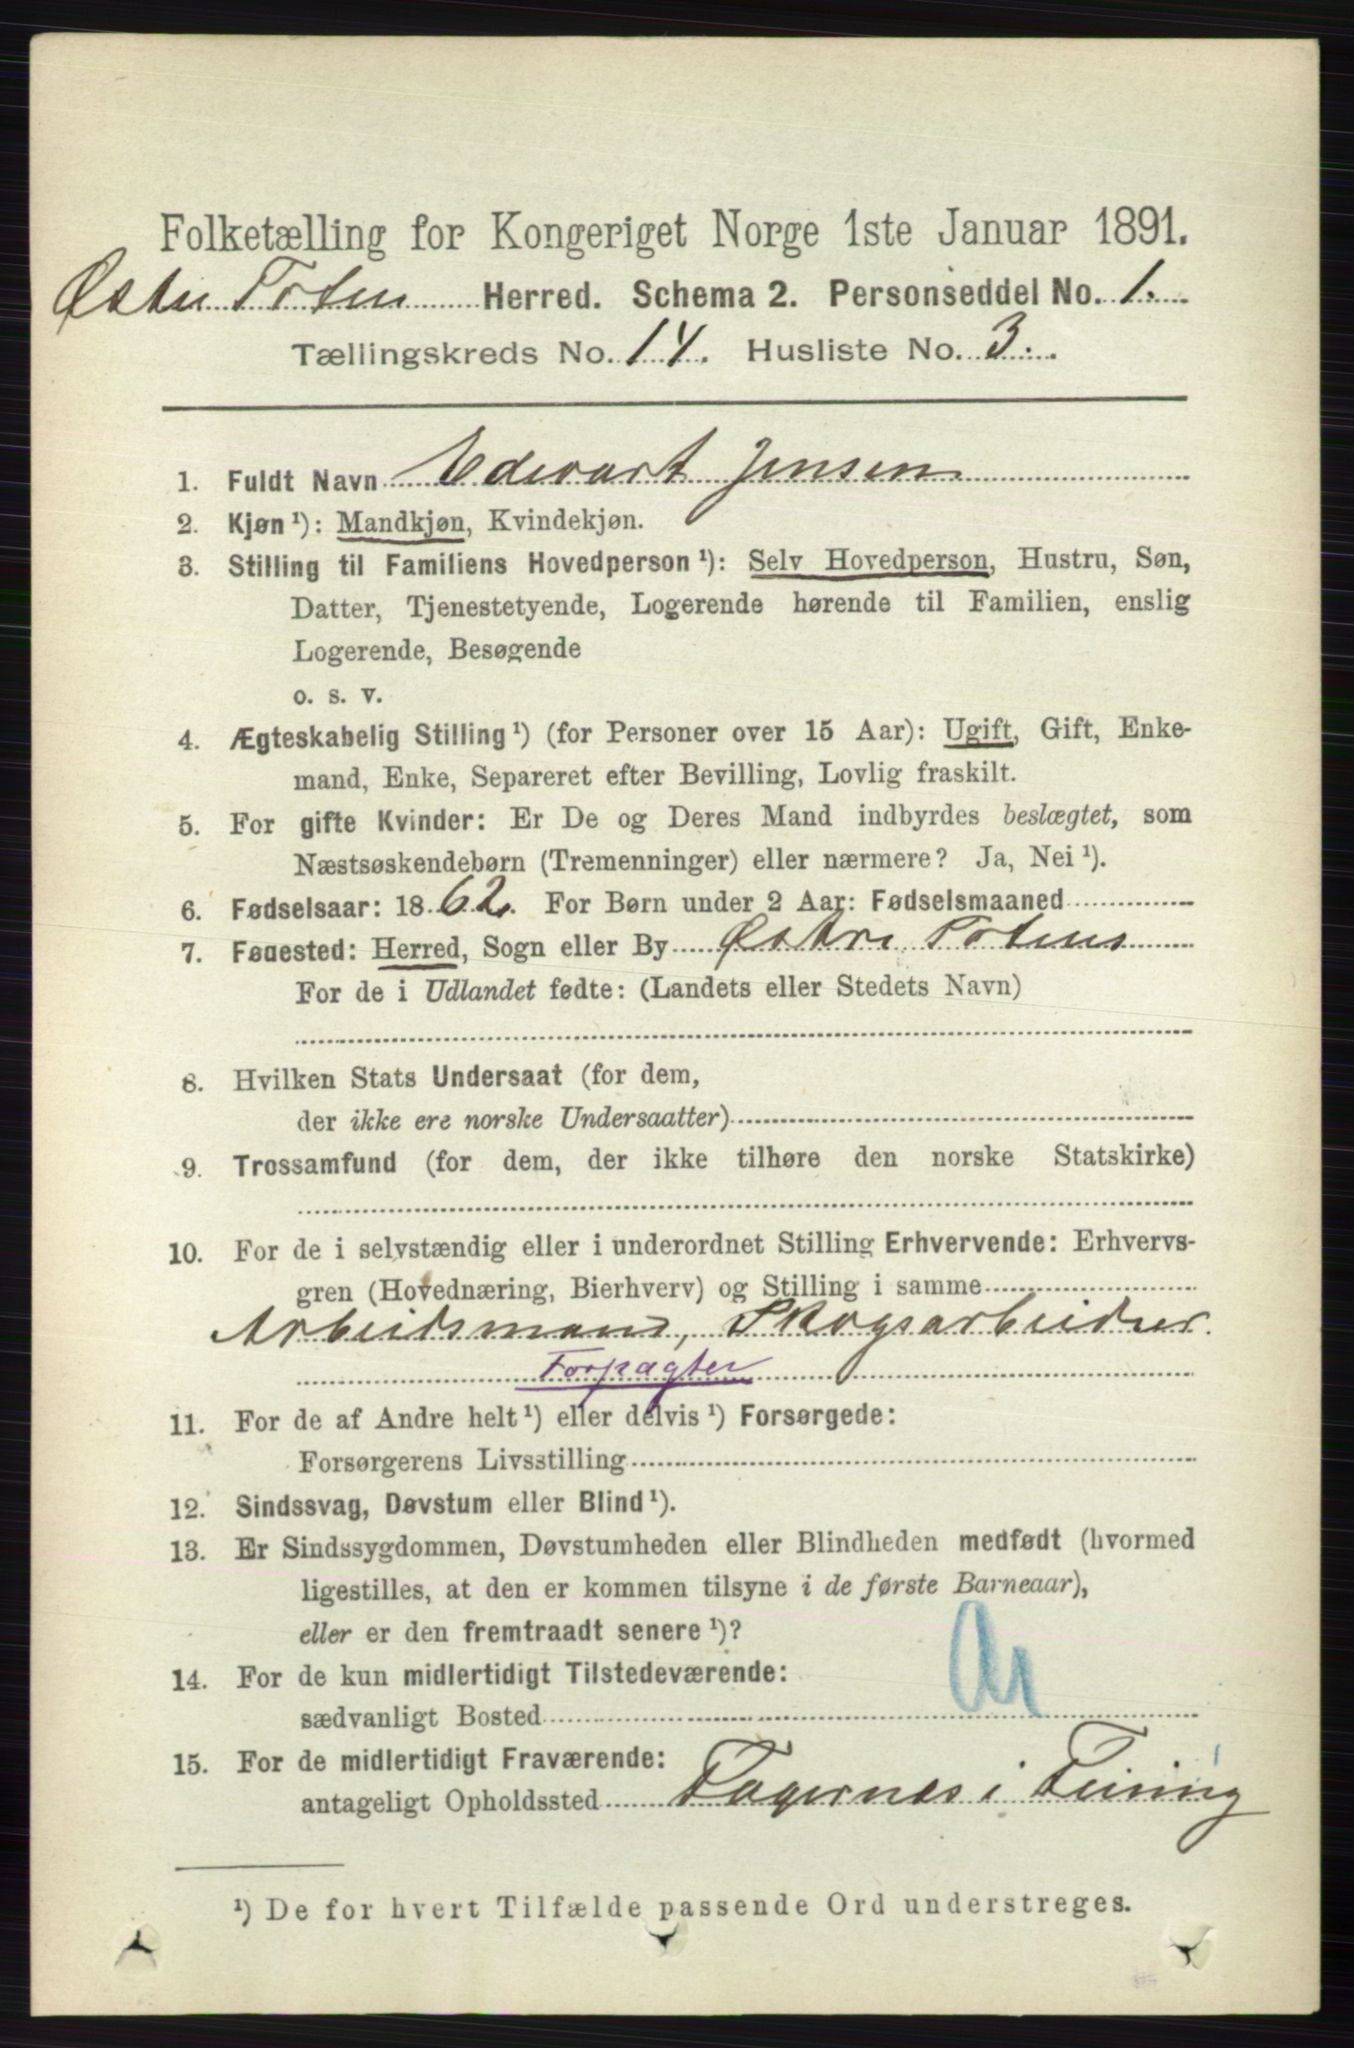 Folketælling for Kongeriget Norge 1ste Januar 1891.
Østre Toten Herred. Schema 2. Personseddel No. 1.
Tællingskreds No. 14. Husliste No. 3.
1. Fuldt Navn Edevart Jensen
2. Kjøn ¹): Mandkjøn, Kvindekjøn.
3. Stilling til Familiens Hovedperson ¹): Selv Hovedperson, Hustru, Søn,
Datter, Tjenestetyende, Logerende hørende til Familien, enslig
Logerende, Besøgende
o. s. v.
4. Ægteskabelig Stilling ¹) (for Personer over 15 Aar): Ugift, Gift, Enke-
mand, Enke, Separeret efter Bevilling, Lovlig fraskilt.
5. For gifte Kvinder: Er De og Deres Mand indbyrdes beslægtet, som
Næstsøskendebørn (Tremenninger) eller nærmere? Ja, Nei ¹).
6. Fødselsaar: 1862. For Børn under 2 Aar: Fødselsmaaned
7. Føuested: Herred, Sogn eller By Østre Totens
For de i Udlandet fødte: (Landets eller Stedets Navn)
8. Hvilken Stats Undersaat (for dem,
der ikke ere norske Undersaatter)
9. Trossamfund (for dem, der ikke tilhøre den norske Statskirke)
10. For de i selvstændig eller i underordnet Stilling Erhvervende: Erhvervs-
gren (Hovednæring, Bierhverv) og Stilling i samme
Arbeidsmand, Skogsarbeider.
Forpagter
11. For de af Andre helt ¹) eller delvis ¹) Forsørgede:
Forsørgerens Livsstilling
12. Sindssvag, Døvstum eller Blind ¹).
13. Er Sindssygdommen, Døvstumheden eller Blindheden medfødt (hvormed
ligestilles, at den er kommen tilsyne i de første Barneaar),
eller er den fremtraadt senere ¹)?
14. For de kun midlertidigt Tilstedeværende:
sædvanligt Bosted
15. For de midlertidigt Fraværende:
antageligt Opholdssted Fagernes i Feiring
¹) De for hvert Tilfælde passende Ord understreges.